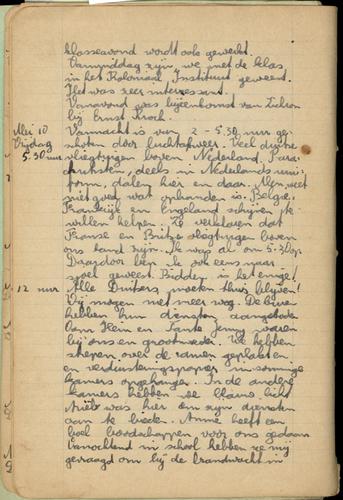 klasseavond wordt ook gewerkt.
Vanmiddag zijn we met de klas
in het Koloniaal Instituut geweest.
Het was zeer interessant.
Vanavond was bijeenkomst van Zichron
bij Ernst Kroch.
Mei 10 Vannacht is van 2 - 5.30 uur ge-
Vrijdag schoten door luchtafweer. Veel Duitse
5.30 uur vliegtuigen boven Nederland. Para-
chutisten, deels in Nederlands uni-
form, dalen hier en daar. Men weet
niet goed wat er handen is. België,
Frankrijk en Engeland schijnen te
willen helpen. Ze verklaren dat
Franse en Britse vliegtuigen boven
ons land zijn. Ik was al om 5.30 op
Daardoor ben ik ook eens naar
sjoel geweest. Bidden is het enige!
12 uur Alle Duitsers moeten thuis blijven!
Wij mogen niet meer weg. De buren
hebben hun diensten aangeboden
Oom Hein en Tante Jenny waren
bij ons en grootmoeder. We hebben
strepen over de ramen geplakt
en verduisteringspapier in sommige
kamers opgehangen. In de andere
kamers hebben we blauw licht
was hier om zijn diensten
aan te bieden. Anne heeft een
boel boodschappen voor ons gedaan
Vanochtend in school hebben ze mij
gevraagd om bij de brandwacht in